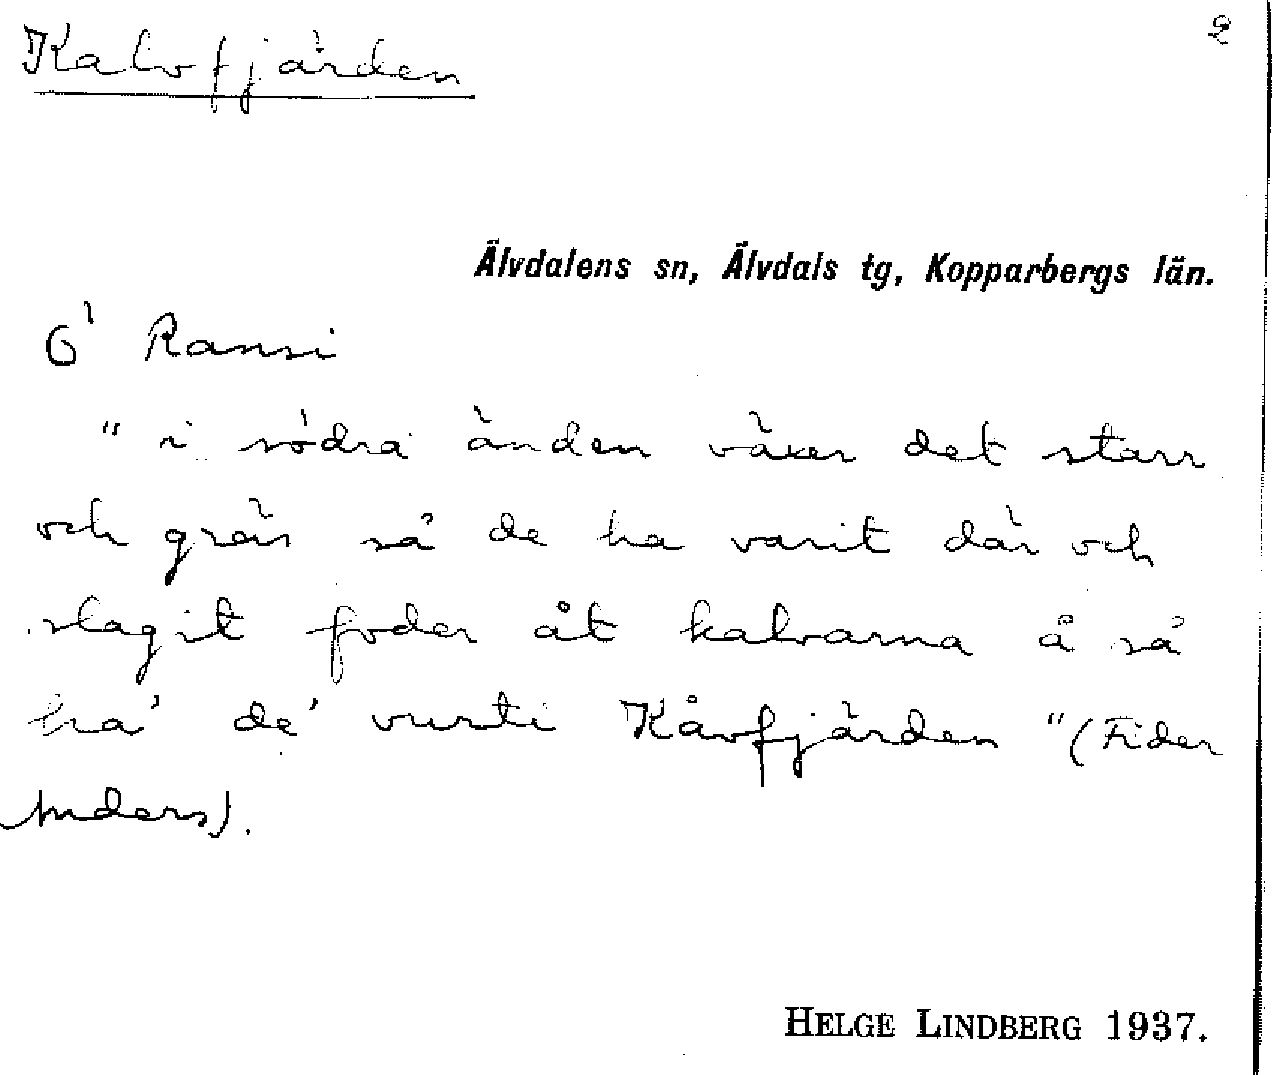 Kalvfjärden
2
Älvdalens sn, Älvdals tg, Kopparbergs län.
Ö Ransi
" i södra änden växer det starr
och gräs så de ha varit där och
slagit foder åt kalvarna å så
ha' de' vurti Kåvfjärden " (Fider
Anders).
HELGE LINDBERG 1937.